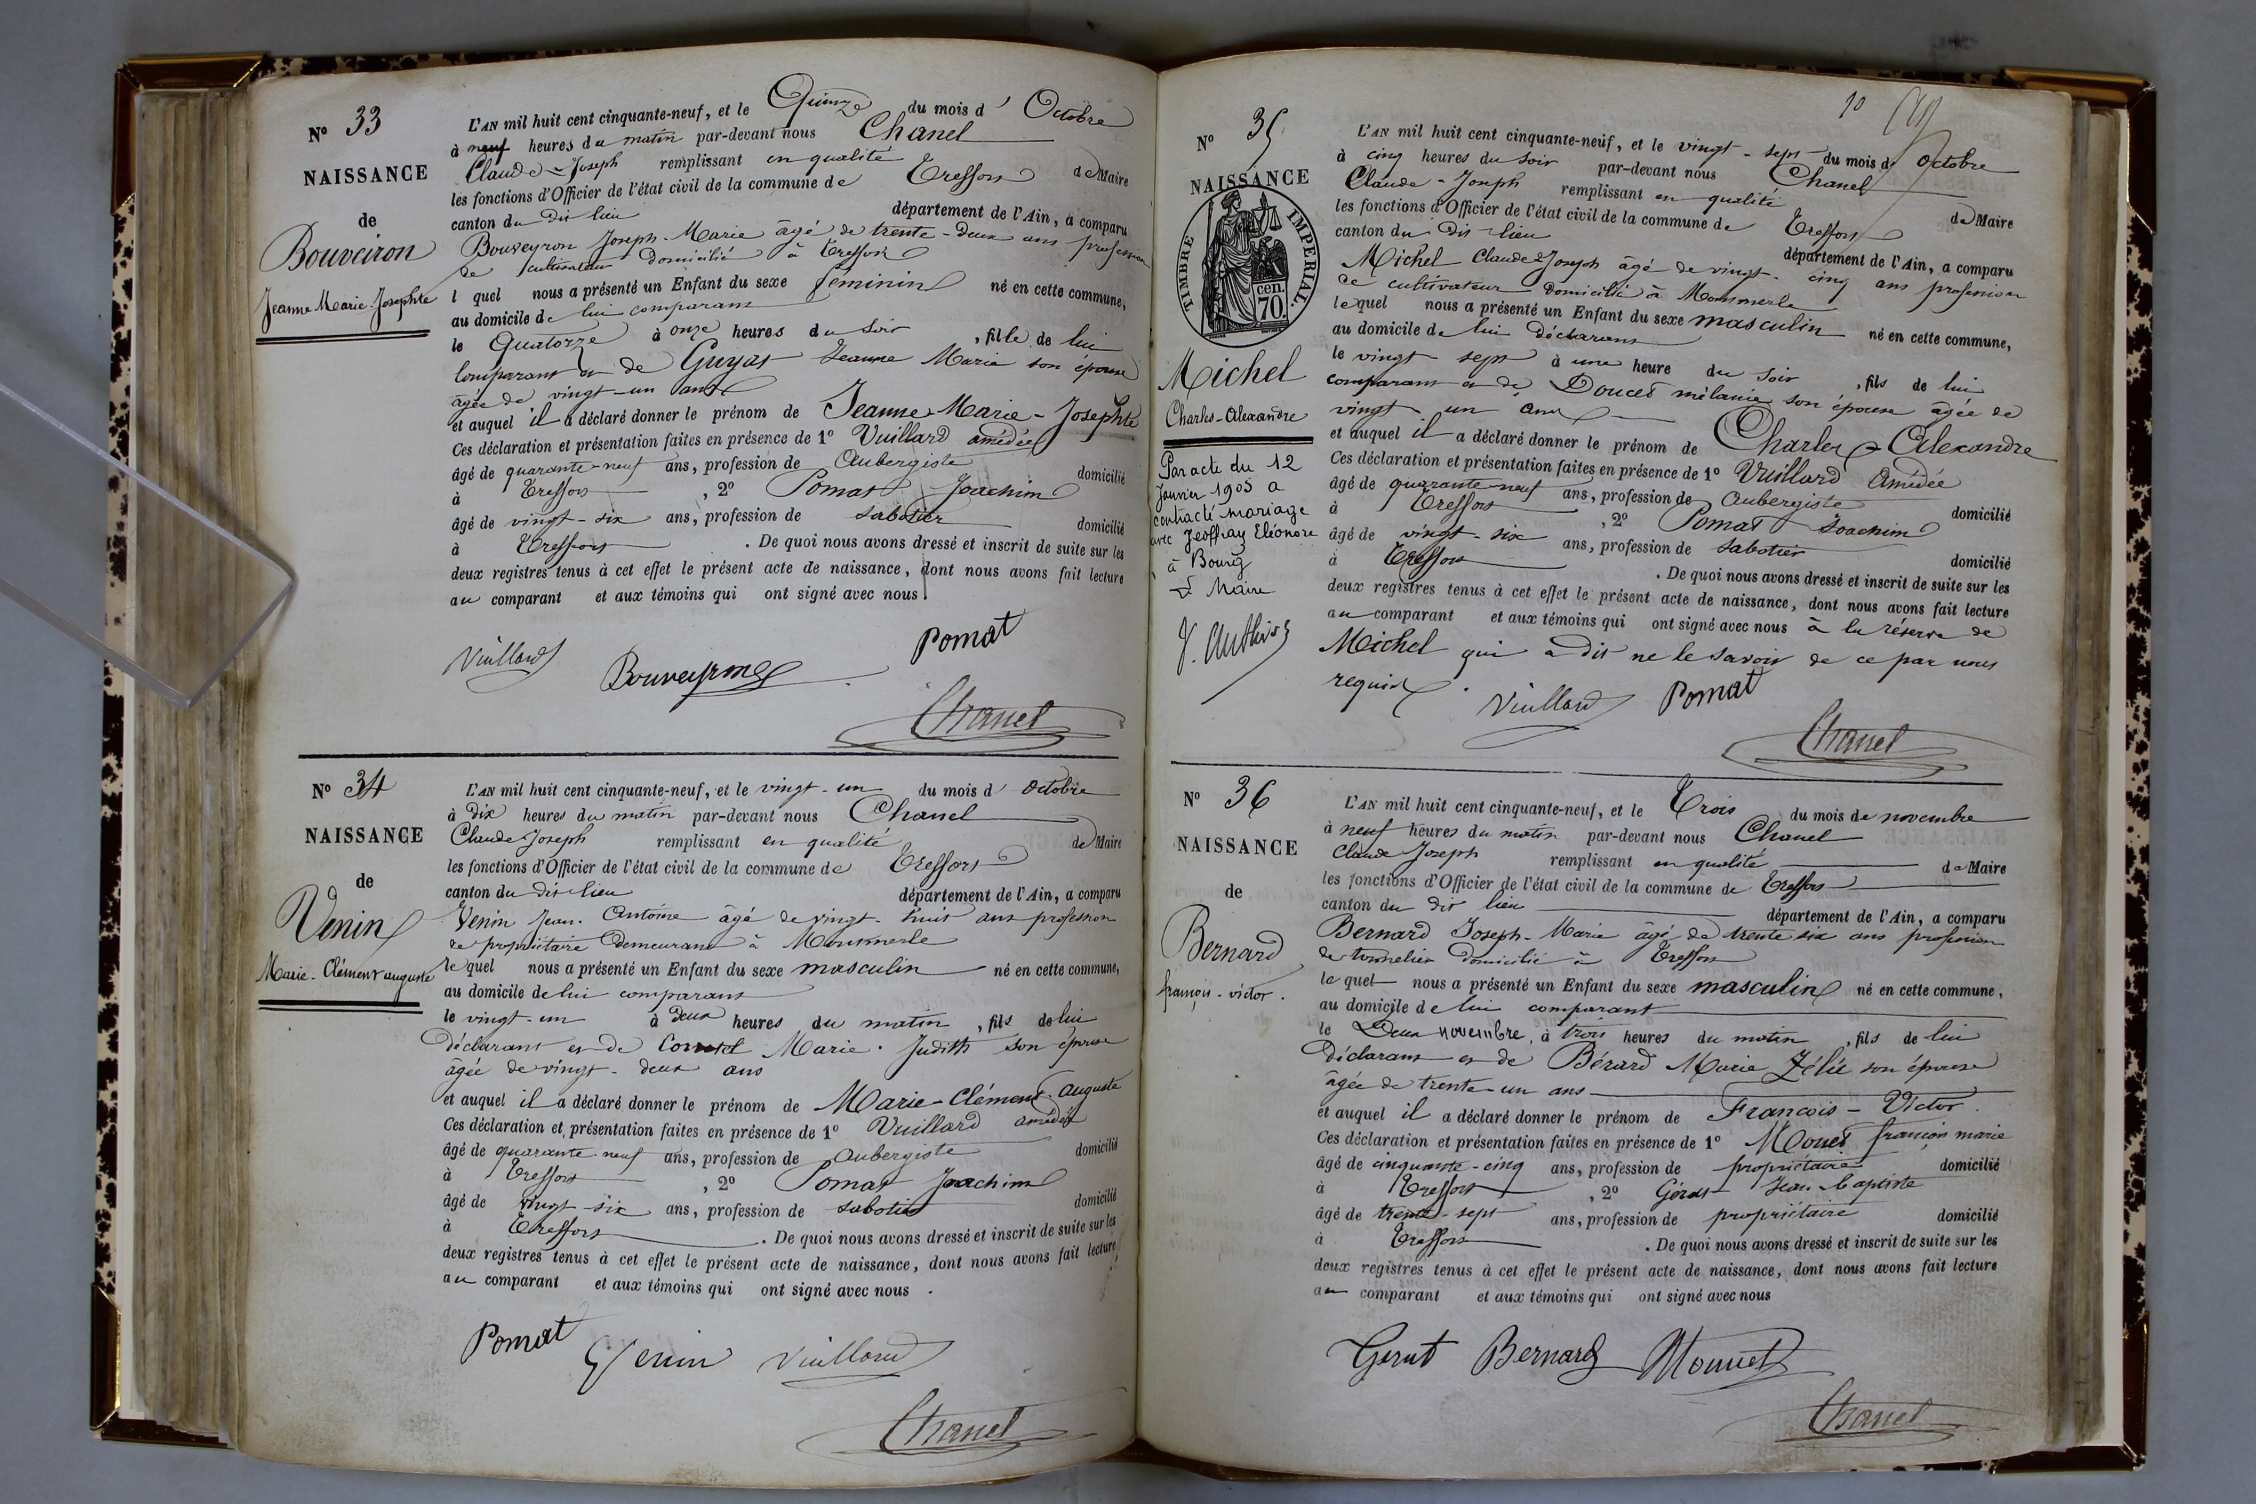 N° 33
NAISSANCE
de
Bouveiron
Jeanne Marie Josephte
L'AN mil huit cent cinquante-neuf, et le Quinze du mois d' Octobre
à neuf heures du matin par-devant nous Chanel
Claude-Joseph remplissant en qualité de Maire
les fonctions d'Officier de l'état civil de la commune de Treffort
canton du dit lieu département de l'Ain, a comparu
Bouveyron Joseph-Marie âgé de trente-deux ans profession
de cultivateur domicilié à Treffort
l quel nous a présenté un Enfant du sexe féminin né en cette commune,
au domicile de lui comparant
le Quatorze à onze heures du soir, fille de lui
comparant et de Guyat Jeanne Marie son épouse
âgée de vingt-un ans
et auquel il a déclaré donner le prénom de Jeanne-Marie-Josephte
Ces déclaration et présentation faites en présence de 1° Vuillard amédée
âgé de quarante-neuf ans, profession de Aubergiste domicilié
à Treffort, 2° Pomat Joachim
âgé de vingt-six ans, profession de sabotier domicilié
à Treffort. De quoi nous avons dressé et inscrit de suite sur les
deux registres tenus à cet effet le présent acte de naissance, dont nous avons fait lecture
au comparant et aux témoins qui ont signé avec nous
Vuillard Bouveyron Pomat
Chanel
N° 34
NAISSANCE
de
Venin
Marie-Clément auguste
L'AN mil huit cent cinquante-neuf, et le vingt-un du mois d' octobre
à dix heures du matin par-devant nous Chanel
Claude Joseph remplissant en qualité de Maire
les fonctions d'Officier de l'état civil de la commune de Treffort
canton du dit lieu département de l'Ain, a comparu
Venin Jean-Antoine âgé de vingt-huit ans profession
de propriétaire demeurant à Montmerle
le quel nous a présenté un Enfant du sexe masculin né en cette commune,
au domicile de lui comparant
le vingt-un à deux heures du matin, fils de lui
déclarant et de Marie-Judith son épouse
âgée de vingt-deux ans
et auquel il a déclaré donner le prénom de Marie-Clément-Auguste
Ces déclaration et présentation faites en présence de 1° Vuillard amédée
âgé de quarante-neuf ans, profession de Aubergiste domicilié
à Treffort, 2° Pomat Joachim
âgé de vingt-six ans, profession de sabotier domicilié
à Treffort. De quoi nous avons dressé et inscrit de suite sur les
deux registres tenus à cet effet le présent acte de naissance, dont nous avons fait lecture
au comparant et aux témoins qui ont signé avec nous.
Pomat Venin Vuillard
Chanel
10
N° 35
NAISSANCE
TIMBRE IMPERIAL.
70. cen.
Michel
Charles-Alexandre
Par acte du 12
Janvier 1905 a
contracté mariage
avec Jeoffray Eléonore
à Bourg
Le Maire
L'AN mil huit cent cinquante-neuf, et le vingt-sept du mois d' octobre
à cinq heures du soir par-devant nous Chanel
Claude-Joseph remplissant en qualité de Maire
les fonctions d'Officier de l'état civil de la commune de Treffort
canton du Dit-lieu département de l'Ain, a comparu
Michel Claude-Joseph âgé de vingt-cinq ans profession
de cultivateur domicilié à Montmerle
le quel nous a présenté un Enfant du sexe masculin né en cette commune,
au domicile de lui déclarant
le vingt-sept à une heure du soir, fils de lui
comparant et de Doucet mélanie son épouse âgée de
vingt-un ans
et auquel il a déclaré donner le prénom de Charles-Alexandre
Ces déclaration et présentation faites en présence de 1° Vuillard Amédée
âgé de quarante-neuf ans, profession de aubergiste domicilié
à Treffort, 2° Pomat Joachim
âgé de vingt-six ans, profession de sabotier domicilié
à Treffort. De quoi nous avons dressé et inscrit de suite sur les
deux registres tenus à cet effet le présent acte de naissance, dont nous avons fait lecture
au comparant et aux témoins qui ont signé avec nous à la réserve de
Michel qui a dit ne le savoir de ce par nous
requis. Vuillard Pomat
Chanel
N° 36
NAISSANCE
de
Bernard
françois-victor.
L'AN mil huit cent cinquante-neuf, et le Trois du mois de novembre
à neuf heures du matin par-devant nous Chanel
Claude Joseph remplissant en qualité de Maire
les fonctions d'Officier de l'état civil de la commune de Treffort
canton du dit lieu département de l'Ain, a comparu
Bernard Joseph-Marie âgé de trente six ans profession
de tonnelier domicilié à Treffort
le quel nous a présenté un Enfant du sexe masculin né en cette commune,
au domicile de lui comparant
le Deux novembre, à trois heures du matin, fils de lui
déclarant et de Bérard Marie Zélie son épouse
âgée de trente-un ans
et auquel il a déclaré donner le prénom de François-Victor.
Ces déclaration et présentation faites en présence de 1° Mouet françois marie
âgé de cinquante-cinq ans, profession de propriétaire domicilié
à Treffort, 2° Gérut Jean-baptiste
âgé de trente-sept ans, profession de propriétaire domicilié
à Treffort. De quoi nous avons dressé et inscrit de suite sur les
deux registres tenus à cet effet le présent acte de naissance, dont nous avons fait lecture
au comparant et aux témoins qui ont signé avec nous
Gerut Bernard Mouuet
Chanel